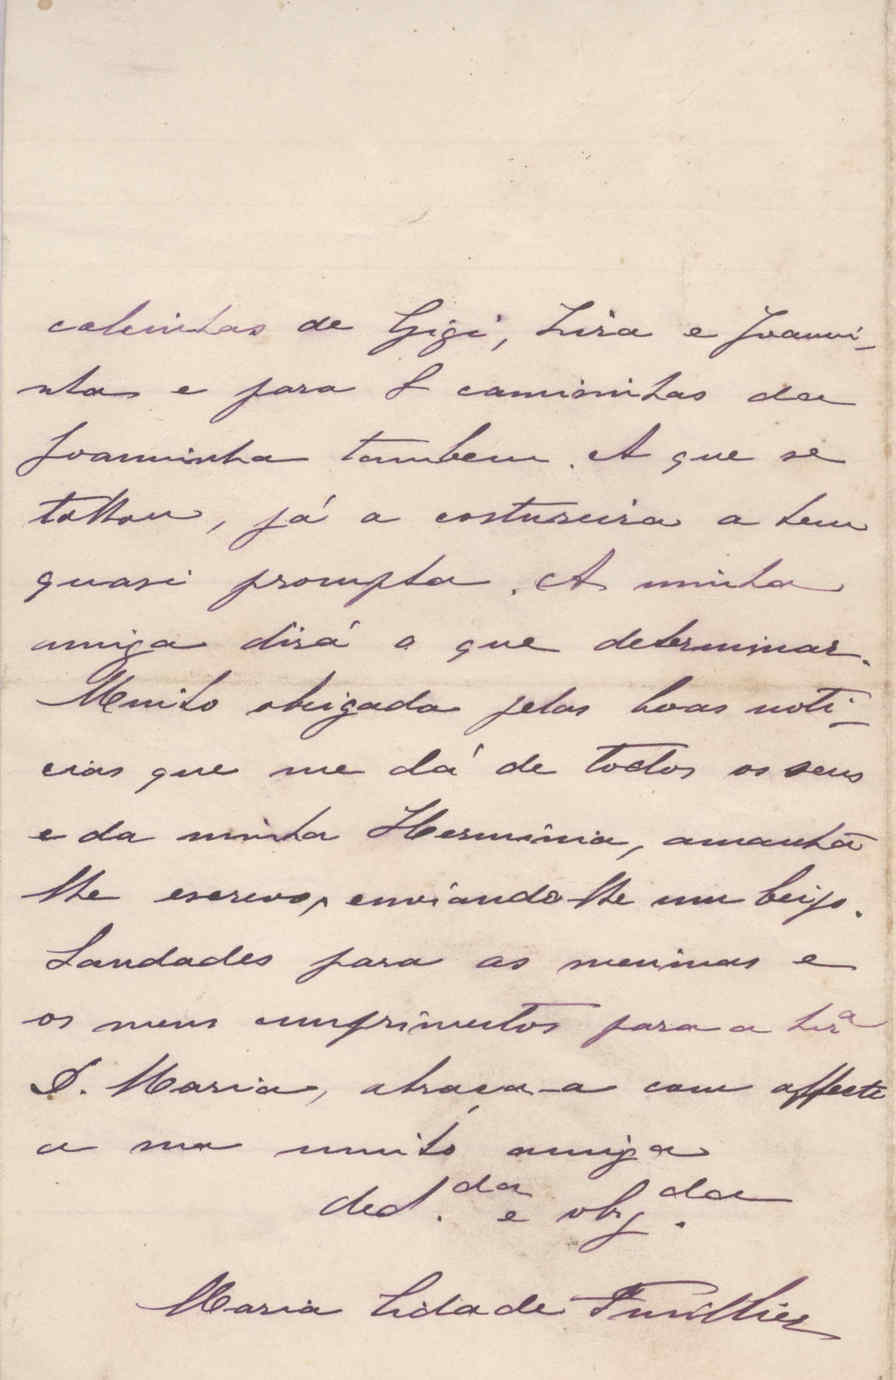 calcinhas de Gigi, Lira e Joanni-
nha e para 8 camisinhas da
Joanninha tambem. A que se
talhou, já a costureira a tem
quasi prompta. A minha
amiga dirá o que determinar.
Muito obrigada pelas boas noti-
cias que me dá de todos os seus
e da minha Herminia, amanhã
lhe escrevo, enviando-lhe um beijo.
Saudades para as meninas e
os meus cumprimentos para a Sr.ª
D. Maria, abraça-a com affecto
a sua muito amiga
ded.da e obg.da
Maria Lidade